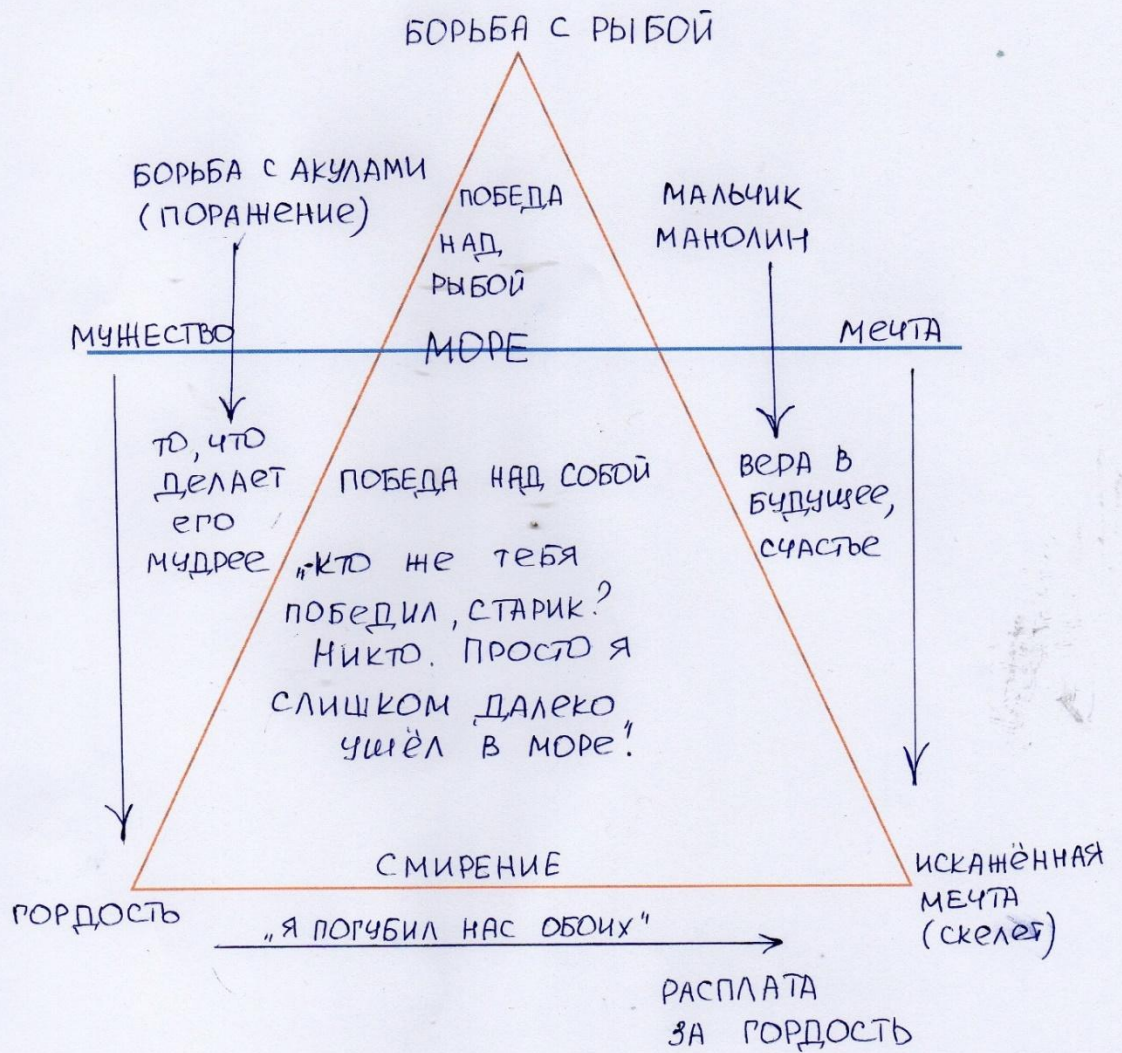 БОРЬБА С РЫБОЙ
БОРЬБА С АКУЛАМИ
(ПОРАЖЕНИЕ)
ПОБЕДА
НАД
РЫБОЙ
МАЛЬЧИК
МАНОЛИН
МУЖЕСТВО
МОРЕ
МЕЧТА
ТО, ЧТО
ДЕЛАЕТ
ЕГО
МУДРЕЕ
ПОБЕДА НАД СОБОЙ
„КТО ЖЕ ТЕБЯ
ПОБЕДИЛ, СТАРИК?
НИКТО. ПРОСТО Я
СЛИШКОМ ДАЛЕКО
УШЁЛ В МОРЕ."
ВЕРА В
БУДУЩЕЕ,
СЧАСТЬЕ
СМИРЕНИЕ
ГОРДОСТЬ
ИСКАЖЁННАЯ
МЕЧТА
(СКЕЛЕТ)
„Я ПОГУБИЛ НАС ОБОИХ"
РАСПЛАТА
ЗА ГОРДОСТЬ